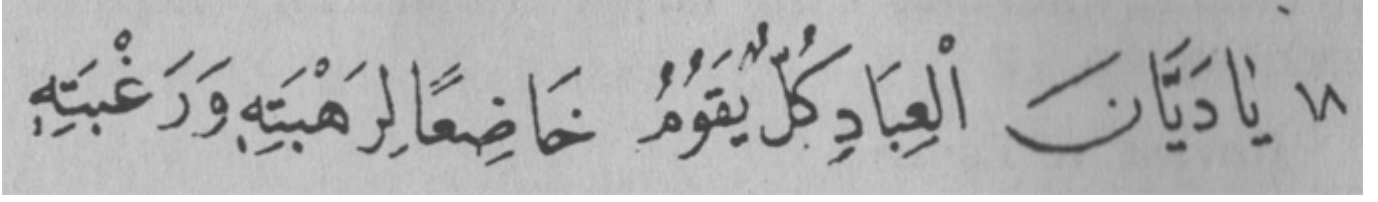 ١٨ يَا دَيَّانَ الْعِبَادِ كُلٌّ يَقُوَمُ خَاضِعًا لِرَهْبَتِهِ وَرَغْبَتِهِ